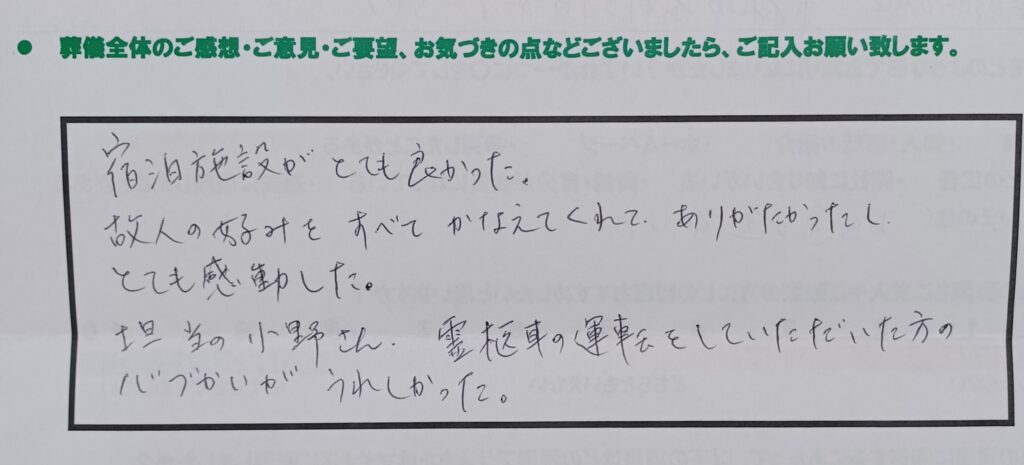 ● 葬儀全体のご感想・ご意見・ご要望、お気づきの点などございましたら、ご記入お願い致します。
宿泊施設が とても良かった。
故人の好みを すべて かなえてくれて ありがたかったし
とても感動した。
担当の小野さん、霊柩車の運転をしていただいた方の
心づかいが うれしかった。